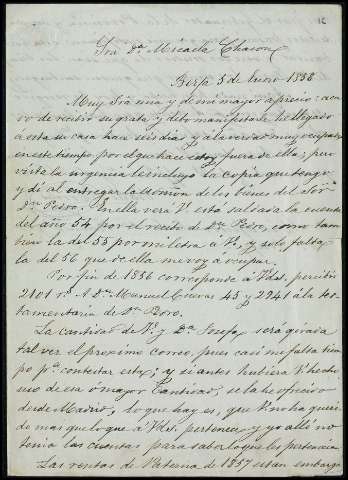 Sra Dª. Micaela Chacon
5 de Enero 1858
Muy Sra mia y de mi mayor aprecio: aca
vo de recibir su grata y debo manifestarle he llegado
a esta su casa hace seis dias y a la verdad muy ocupado
en este tiempo por el que hace estoy fuera de ella; pero
vista la urgencia le incluyo la copia que tengo
y di al entregar la de los bienes del Señor
Dn. Pedro. En ella vera V. esta saldada la cuenta
del año 54 por el recibo de Dn. Pedro, como tam
bien la del 55 por mi letra á V., y solo falta
la del 56 que de ella me voy á ocupar.
Por fin de 1856 corresponde á Vds. percibir
2101 A Dn. Manuel Cuevas 45 y 2241 á la tes
tamentaria de Dn. Pedro.
La cantidad de V. y Dª. Josefa, será girada
tal vez el procsimo correo, pues casi me falta tiem
po pª. contestar esta; y si antes hubiera V. hecho
uso de esa ó mayor cantidad, se la he ofrecido
desde Madrid, lo que hay es, que V. no ha queri
do mas que lo que á Vds. pertenece y yo alli no
tenia las cuentas para saber lo que les pertenecia
Las rentas de Paterna de 1857 estan embarga